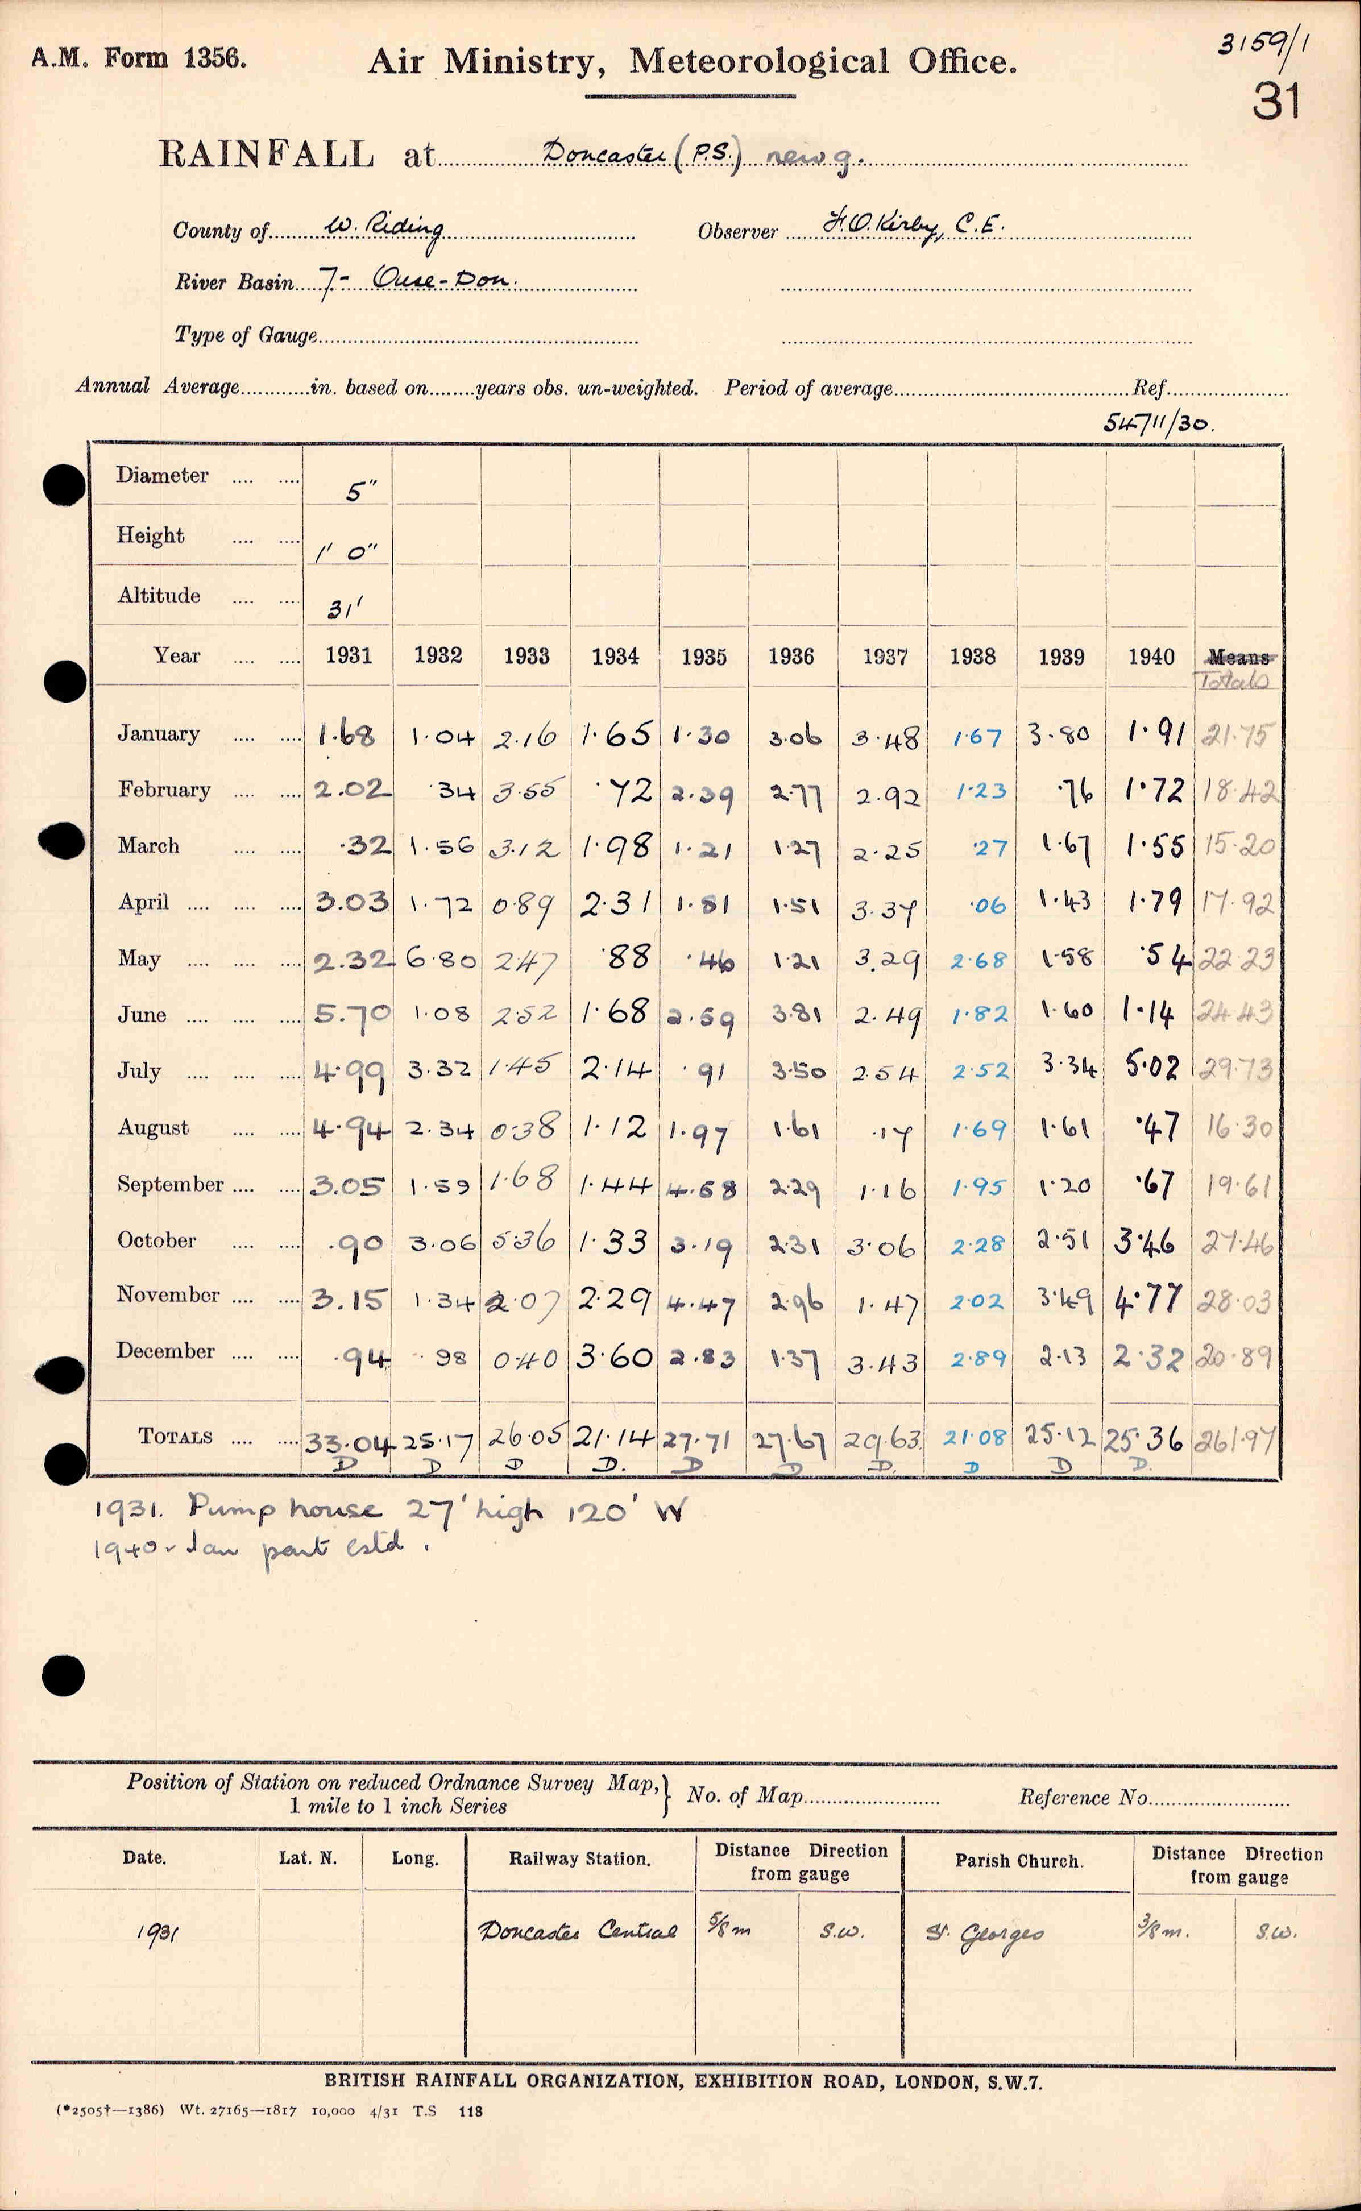 A.M. Form 1356. Air Ministry, Meteorological Office. 3159/1
31
RAINFALL at Doncaster (P.S.) new g.
County of W. Riding Observer F.O. Kirby, C.E.
River Basin 7- Ouse-Don.
Type of Gauge
Annual Average in. based on years obs. un-weighted. Period of average Ref.
54711/30.
Diameter 5"
Height 1' 0"
Altitude 31'
Year 1931 1932 1933 1934 1935 1936 1937 1938 1939 1940 Means
Totals
January 1.68 1.04 2.16 1.65 1.30 3.06 3.48 1.67 3.80 1.91 21.75
February 2.02 .34 3.55 .72 2.39 2.77 2.92 1.23 .76 1.72 18.42
March .32 1.56 3.12 1.98 1.21 1.27 2.25 .27 1.67 1.55 15.20
April 3.03 1.72 0.89 2.31 1.81 1.51 3.37 .06 1.43 1.79 17.92
May 2.32 6.80 2.47 .88 .46 1.21 3.29 2.68 1.58 .54 22.23
June 5.70 1.08 2.52 1.68 2.59 3.81 2.49 1.82 1.60 1.14 24.43
July 4.99 3.32 1.45 2.14 .91 3.50 2.54 2.52 3.34 5.02 29.73
August 4.94 2.34 0.38 1.12 1.97 1.61 .17 1.69 1.61 .47 16.30
September 3.05 1.59 1.68 1.44 4.58 2.29 1.16 1.95 1.20 .67 19.61
October .90 3.06 5.36 1.33 3.19 2.31 3.06 2.28 2.51 3.46 27.46
November 3.15 1.34 2.07 2.29 4.47 2.96 1.47 2.02 3.49 4.77 28.03
December .94 .98 0.40 3.60 2.83 1.37 3.43 2.89 2.13 2.32 20.89
TOTALS 33.04 25.17 26.05 21.14 27.71 27.67 29.63 21.08 25.12 25.36 261.97
D D D D. D D D. D D D.
1931. Pump house 27' high 120' W
1940 - Jan part estd.
Position of Station on reduced Ordnance Survey Map,} No. of Map Reference No.
1 mile to 1 inch Series
Date. Lat. N. Long. Railway Station. Distance Direction from gauge Parish Church. Distance Direction from gauge
1931 Doncaster Central 5/8 m S.W. St. Georges 3/8 m. S.W.
BRITISH RAINFALL ORGANIZATION, EXHIBITION ROAD, LONDON, S.W.7.
(*2505†—1386) Wt. 27165—1817 10,000 4/31 T.S 118